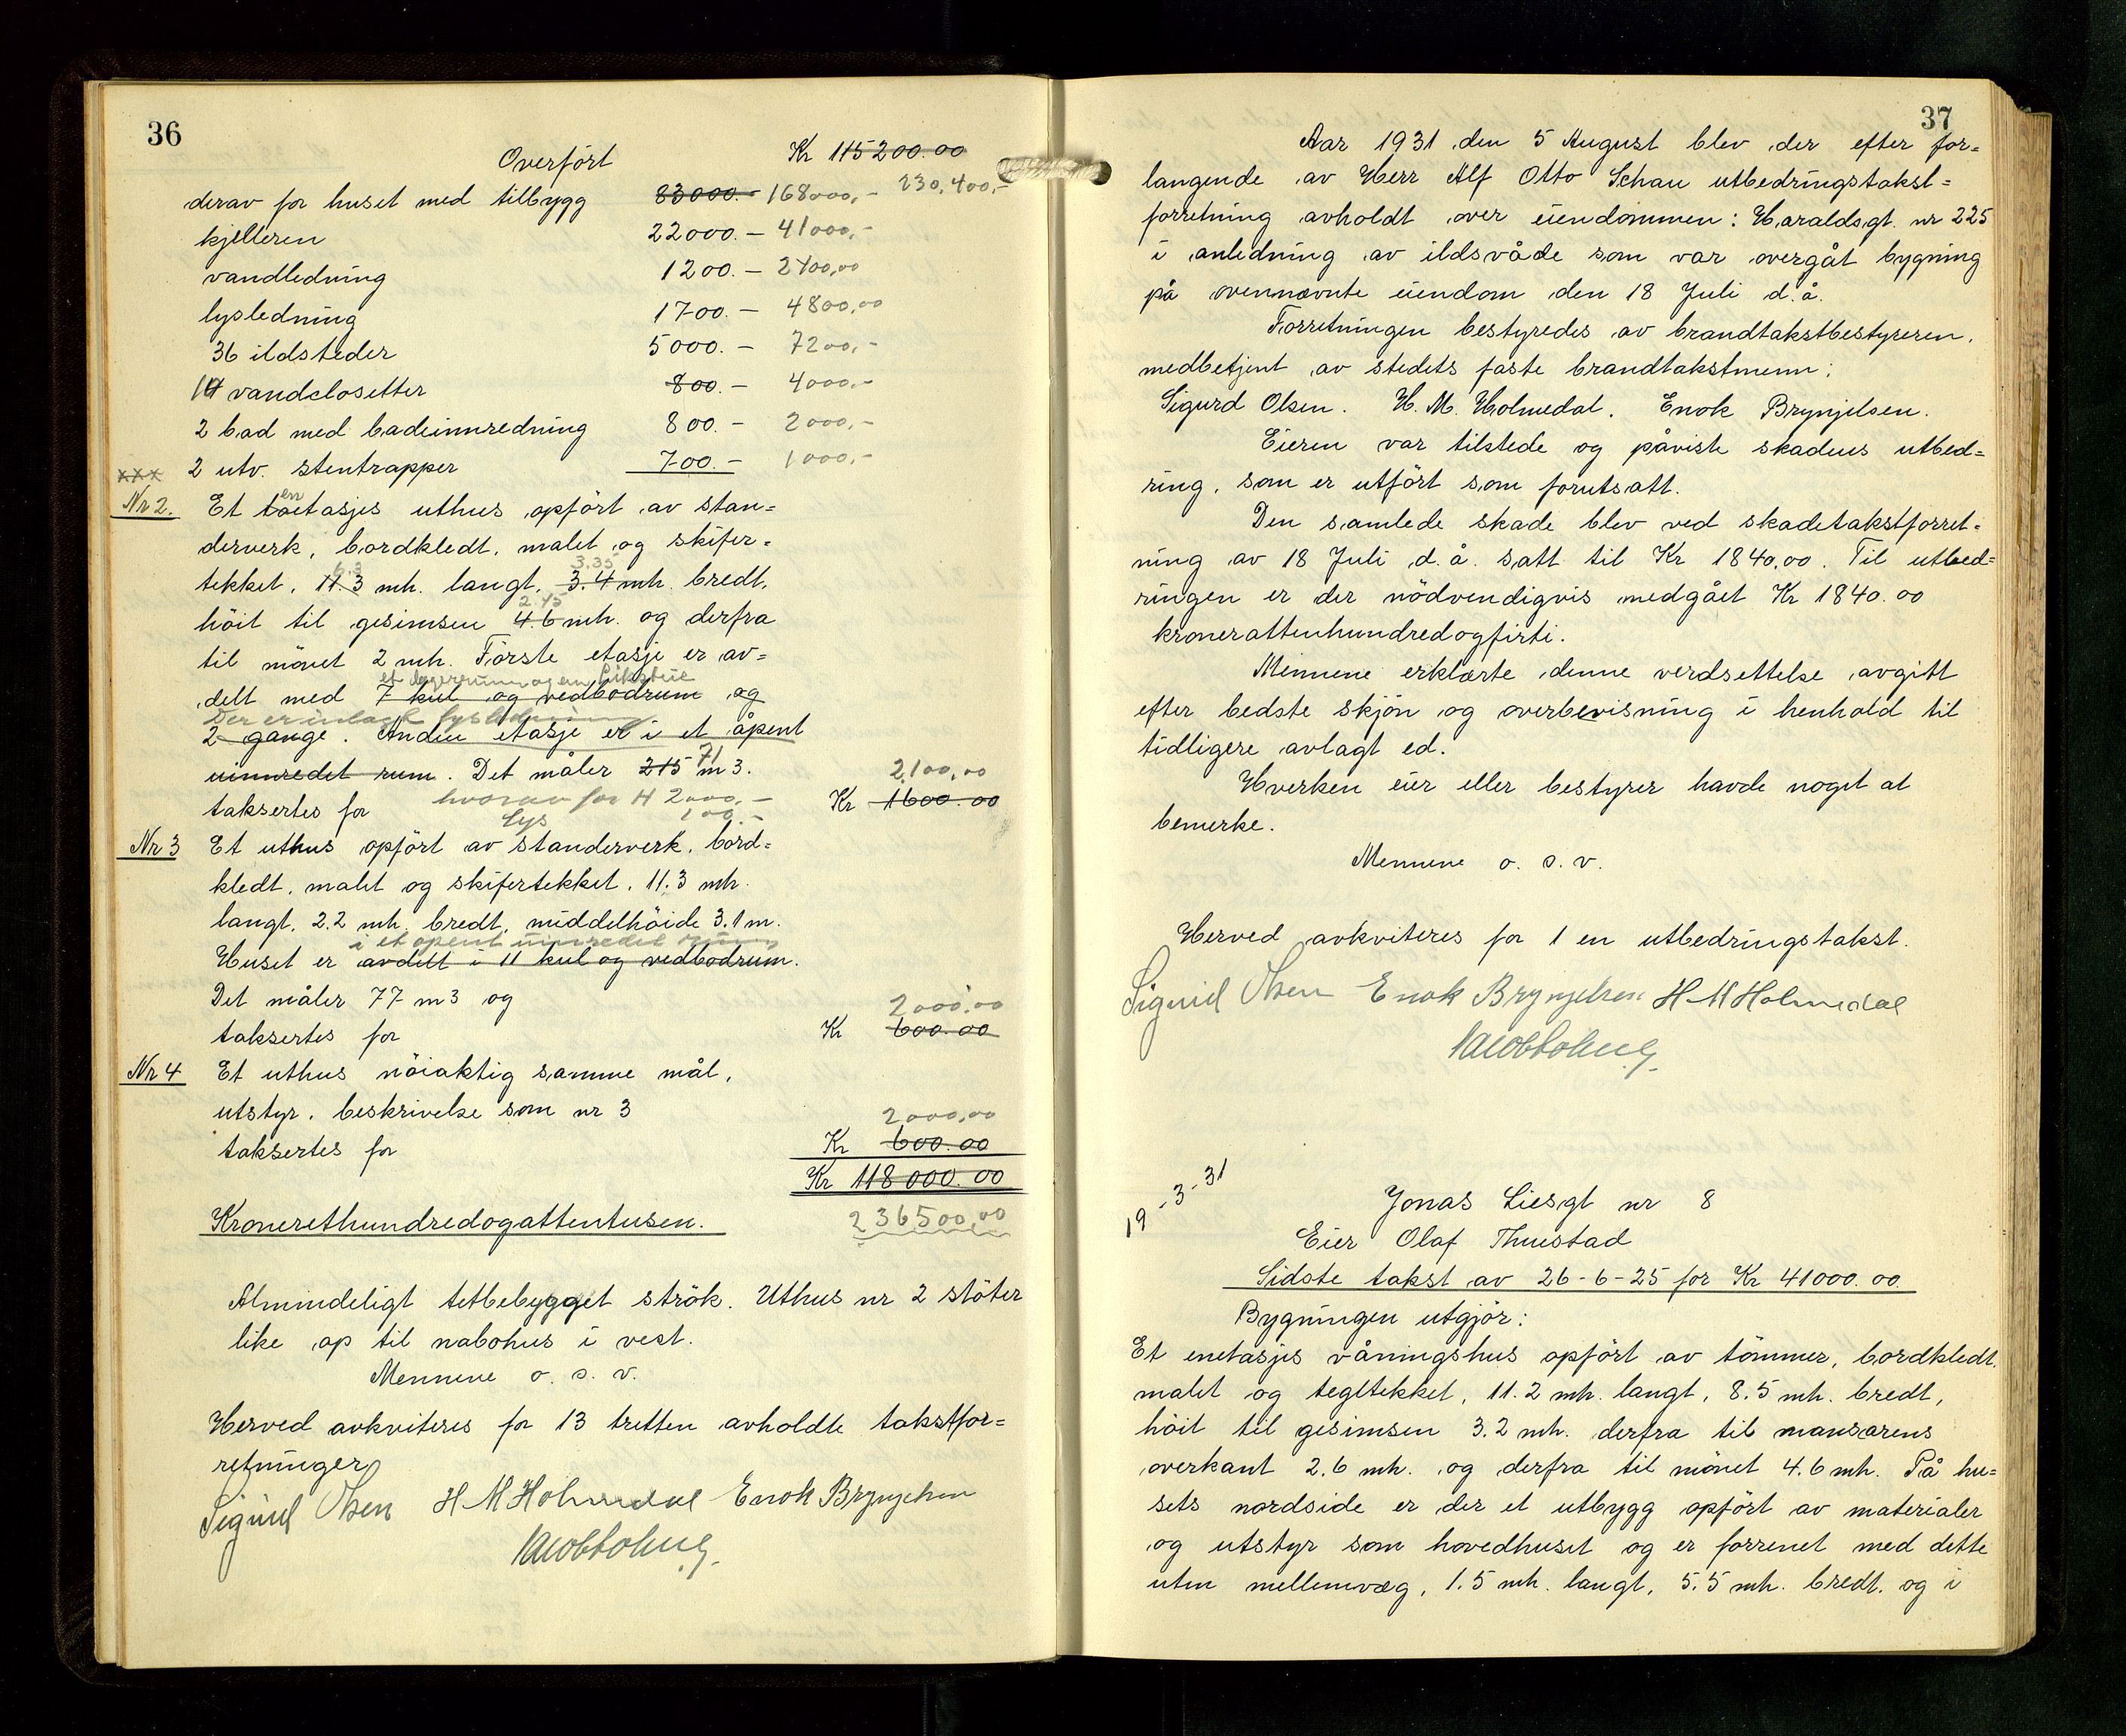 36
Overført Kr 115200.00
derav for huset med tilbygg 83000.- 168000,- 230,400,-
kjelleren 22000.- 41000,-
vandledning 1200.- 2400,00
lysledning 1700.- 4800,00
36 ildsteder 5000.- 7200,-
vandclosetter 800.- 4000,-
2 bad med badeinnredning 800.- 2000,-
xxx 2 utv. stentrapper 700.- 1000,-
en
Nr 2. Et toetasjes uthus opført av stan=
derverk, bordkledt, malet og skifer=
6.3 3.35
tekket, 11.3 mh. langt, 3.4 mh. bredt,
2.45
höit til gesimsen 4.6 mh. og derfra
til mönet 2 mh. Förste etasje er av=
et lagerrum og en
delt med 7 kul og vedbodrum og
Der er inlagt lysledning
2 gange. Anden etasje er i et åpent
71
uinnredet rum. Det måler 215 m3.
2,100,00
taksertes for hvorav for H 2000,- Kr 1600.00
Lys 100.-
Nr 3 Et uthus opført av standerverk, bord=
kledt, malet og skifertekket, 11.3 mh.
langt, 2.2 mh. bredt, middelhöide 3.1 m.
i et åpent uinnredet rum
Huset er avdelt i 11 kul og vedbodrum.
Det måler 77 m3 og
2000.00
taksertes for Kr 600.00
Nr 4 Et uthus nöiaktig samme mål,
utstyr, beskrivelse som nr 3
2000,00
taksertes for Kr 600.00
Kr 118000.00
Kronerethundredogattentusen. 236500,00
Almindeligt tetbebygget strök. Uthus nr 2 stöter
like op til nabohus i vest.
Mennene o. s. v.
Herved avkviteres for 13 tretten avholdte takstfor=
retninger
Sigurd Olsen H M Holmedal Enok Brynjelsen
37
Aar 1931 den 5 August blev der efter for=
langende av Herr Alf Otto Schau utbedringstakst=
forretning avholdt over eiendommen: Haraldsgt. nr 225
i anledning av ildsvåde som var overgåt bygning
på ovennævnte eiendom den 18 Juli d.å.
Forretningen bestyredes av brandtakstbestyreren,
medbetjent av stedets faste brandtakstmenn:
Sigurd Olsen. H. M. Holmedal. Enok Brynjelsen.
Eieren var tilstede og påviste skadens utbed=
ring, som er utfört som forutsatt.
Den samlede skade blev ved skadetakstforret=
ning av 18 Juli d.å. satt til Kr 1840,00. Til utbed=
ringen er der nödvendigvis medgået Kr 1840.00
kronerattenhundredogfirti.
Mennene erklærte denne verdsettelse avgitt
efter bedste skjön og overbevisning i henhold til
tidligere avlagt ed.
Hverken eier eller bestyrer havde noget at
bemerke.
Mennene o. s. v.
Herved avkviteres for 1 en utbedringstakst.
Sigurd Olsen Enok Brynjelsen H M Holmedal
19-3-31
Jonas Liesgt nr 8
Eier Olaf Thuestad
Sidste takst av 26-6-25 for Kr 41000.00.
Bygningen utgjör:
Et enetasjes våningshus opfört av tömmer, bordkledt,
malet og tegltekket, 11.2 mh. langt, 8.5 mh. bredt,
höit til gesimsen 3.2 mh. derfra til mansarens
overkant 2.6 mh. og derfra til mönet 4.6 mh. På hu=
sets nordside er der et utbygg opfört av materialer
og utstyr som hovedhuset og er forrenet med dette
uten mellemvæg, 1.5 mh. langt, 5.5 mh. bredt, og i